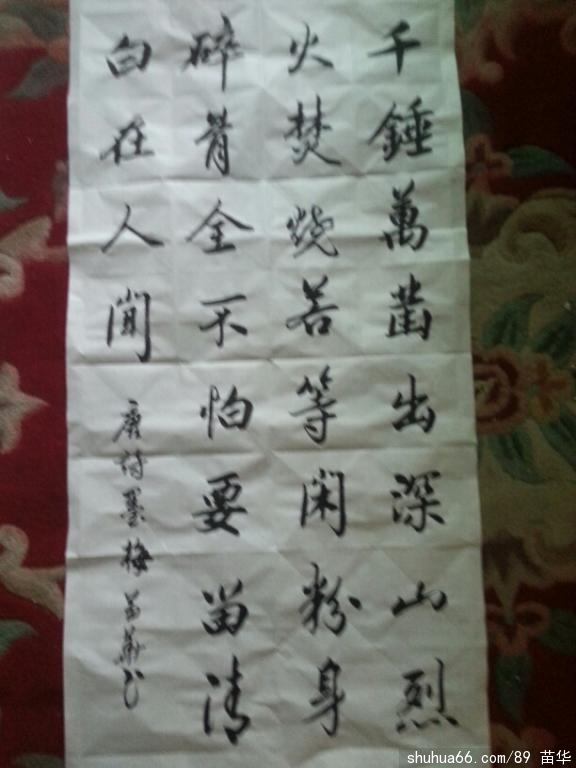 千錘萬凿出深山烈
火焚烧若等闲粉身
碎骨全不怕要留清
白在人间
唐诗墨梅 苗華书
shuhua66.com/89 苗华